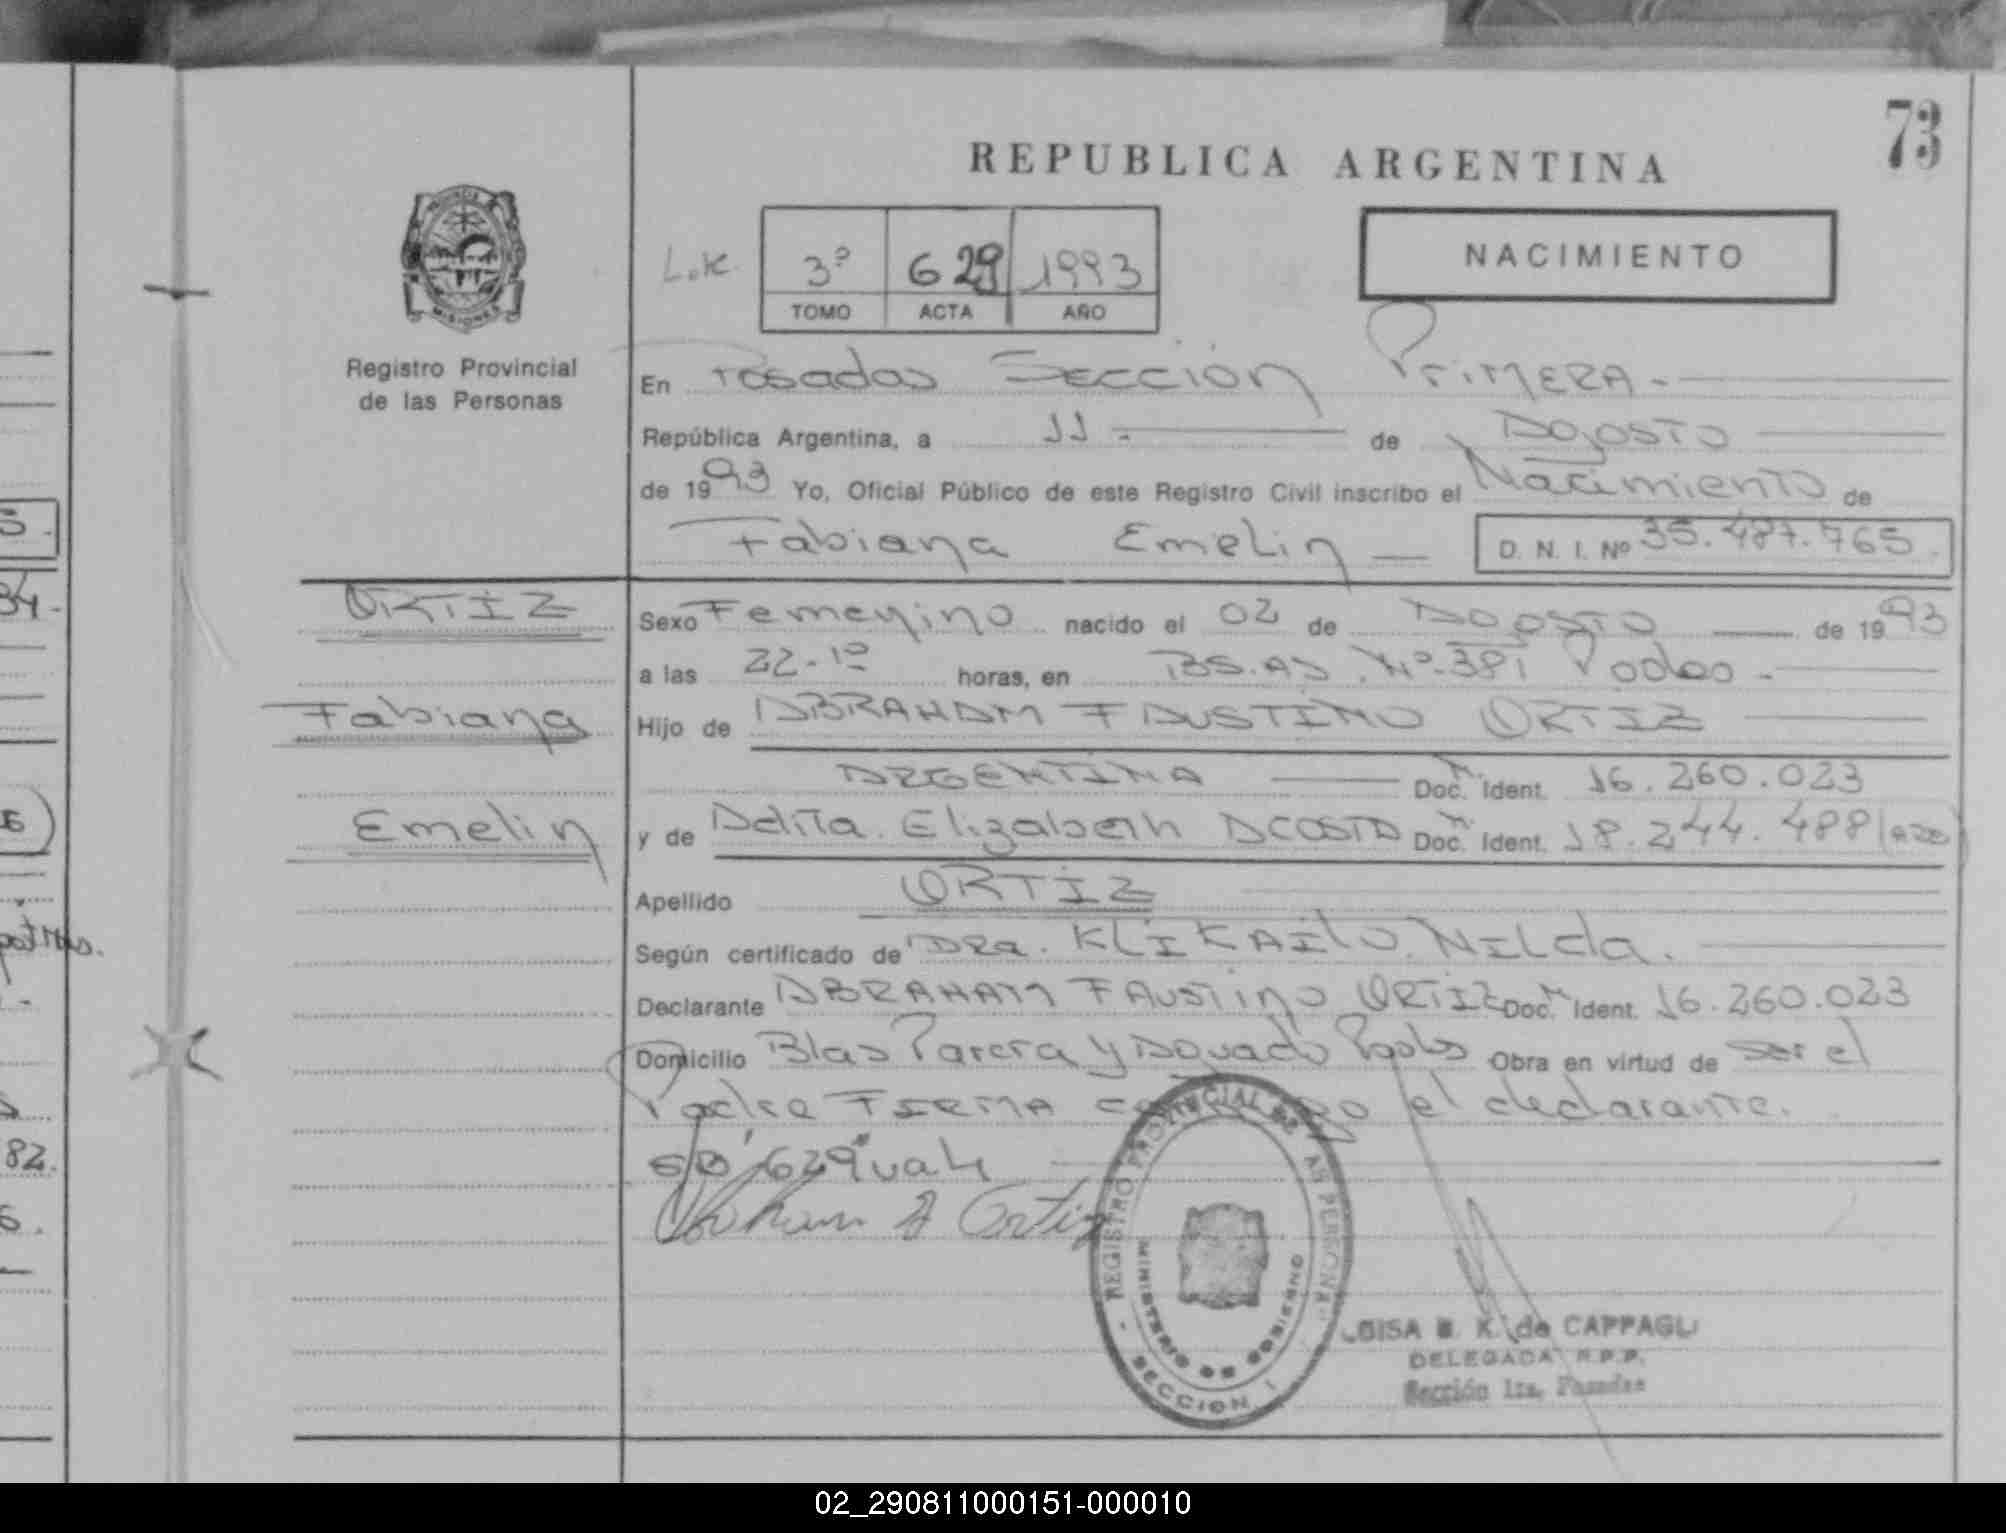 73
REPUBLICA ARGENTINA
PROVINCIA DE
MISIONES
L.K.
3º 629 1993
TOMO ACTA AÑO
NACIMIENTO
Registro Provincial
de las Personas
En Posadas Sección Primera.-
República Argentina, a 11.- de Agosto
de 1993 Yo, Oficial Público de este Registro Civil inscribo el Nacimiento de
Fabiana Emelin D. N. I. Nº 35.487.765.
ORTIZ
Sexo Femenino nacido el 02 de Agosto de 1993
a las 22-10 horas, en BS.AS. Nº-381 Podas.-
Fabiana
Hijo de ABRAHAM FAUSTINO ORTIZ
ARGENTINA Doc. Ident. 16.260.023
Emelin
y de Delita Elizabeth ACOSTA Doc. Ident. 18.244.488
Apellido ORTIZ
Según certificado de Dra. KLIKAILO NILda.
Declarante ABRAHAM FAUSTINO ORTIZ Doc. Ident. 16.260.023
Domicilio Blas Parera y Aguado Obra en virtud de ser el
Padre FIRMA el declarante.
629 vale
Abraham F Ortiz
REGISTRO PROVINCIAL DE LAS PERSONAS
MINISTERIO DE GOBIERNO
SECCION I
K. de CAPPAGLI
DELEGADA R.P.P.
Sección 1ra. Posadas
5.
34.
82.
6.
02_290811000151-000010